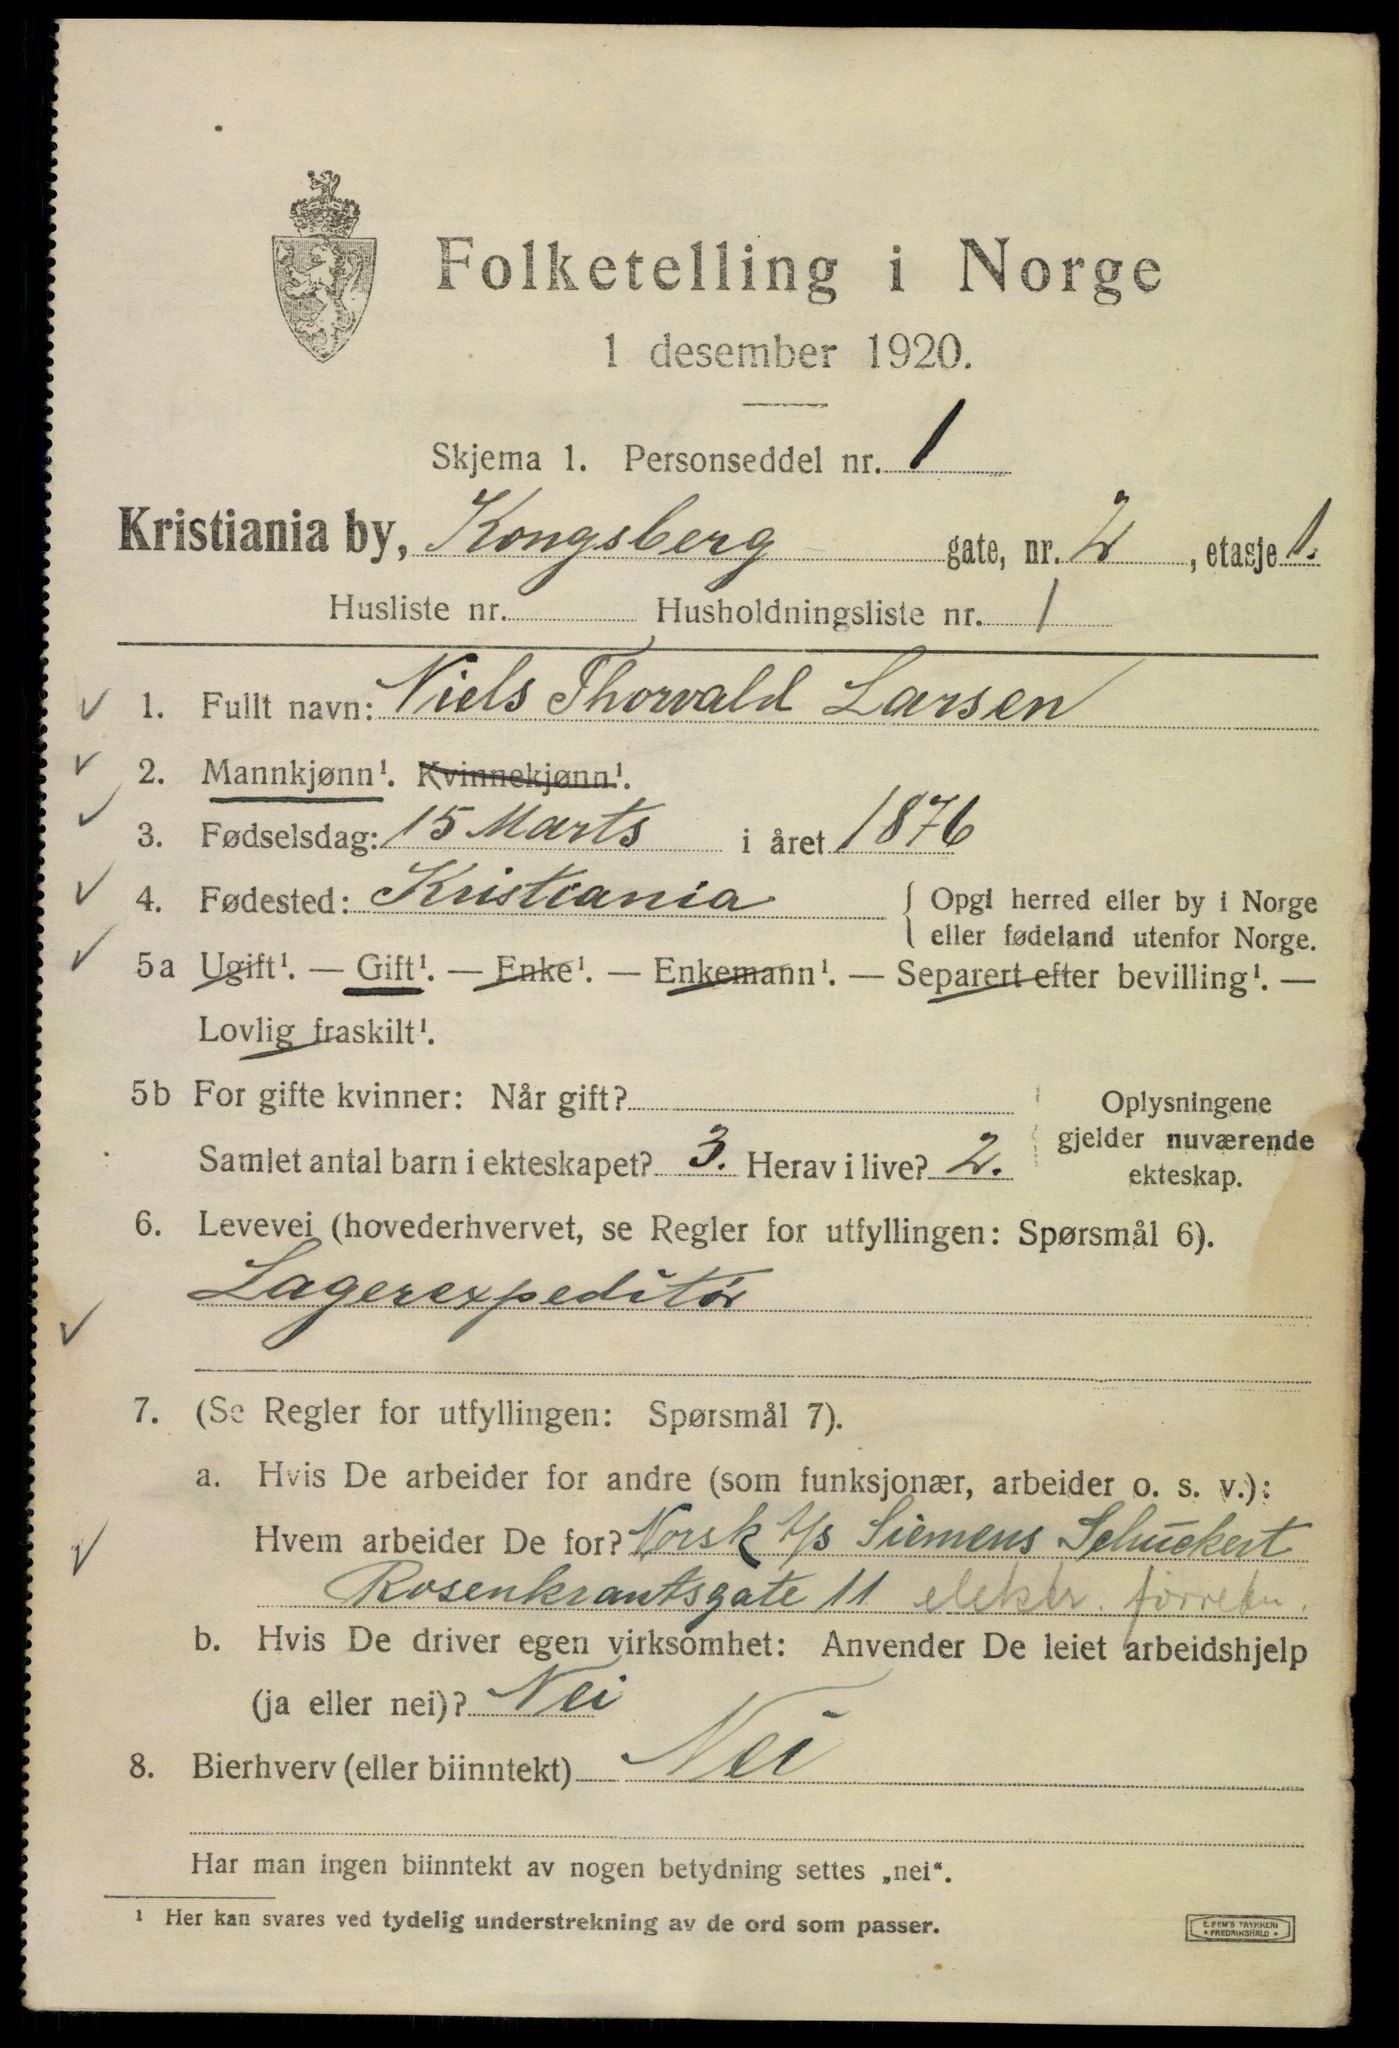 Folketelling i Norge
1 desember 1920.
Skjema 1. Personseddel nr. 1
Kristiania by, Kongsberg gate, nr. 2, etasje 1.
Husliste nr. Husholdningsliste nr. 1
1. Fullt navn: Niels Thorvald Larsen
2. Mannkjønn¹. Kvinnekjønn¹.
3. Fødselsdag: 15 Marts i året 1876
4. Fødested: Kristiania { Opgi herred eller by i Norge
eller fødeland utenfor Norge.
5a Ugift¹. — Gift¹. — Enke¹. — Enkemann¹. — Separert efter bevilling¹. —
Lovlig fraskilt¹.
5b For gifte kvinner: Når gift?
Samlet antal barn i ekteskapet? 3. Herav i live? 2.
Oplysningene
gjelder nuværende
ekteskap.
6. Levevei (hovederhvervet, se Regler for utfyllingen: Spørsmål 6).
Lagerexpeditör
7. (Se Regler for utfyllingen: Spørsmål 7).
a. Hvis De arbeider for andre (som funksjonær, arbeider o. s. v.):
Hvem arbeider De for? Norsk A/s Siemens Schuckert
Rosenkrantsgate 11 elektr. forretn.
b. Hvis De driver egen virksomhet: Anvender De leiet arbeidshjelp
(ja eller nei)? Nei
8. Bierhverv (eller biinntekt) Nei
Har man ingen biinntekt av nogen betydning settes „nei“.
¹ Her kan svares ved tydelig understrekning av de ord som passer.
E. SEM'S TRYKKERI
* FREDRIKSHALD *